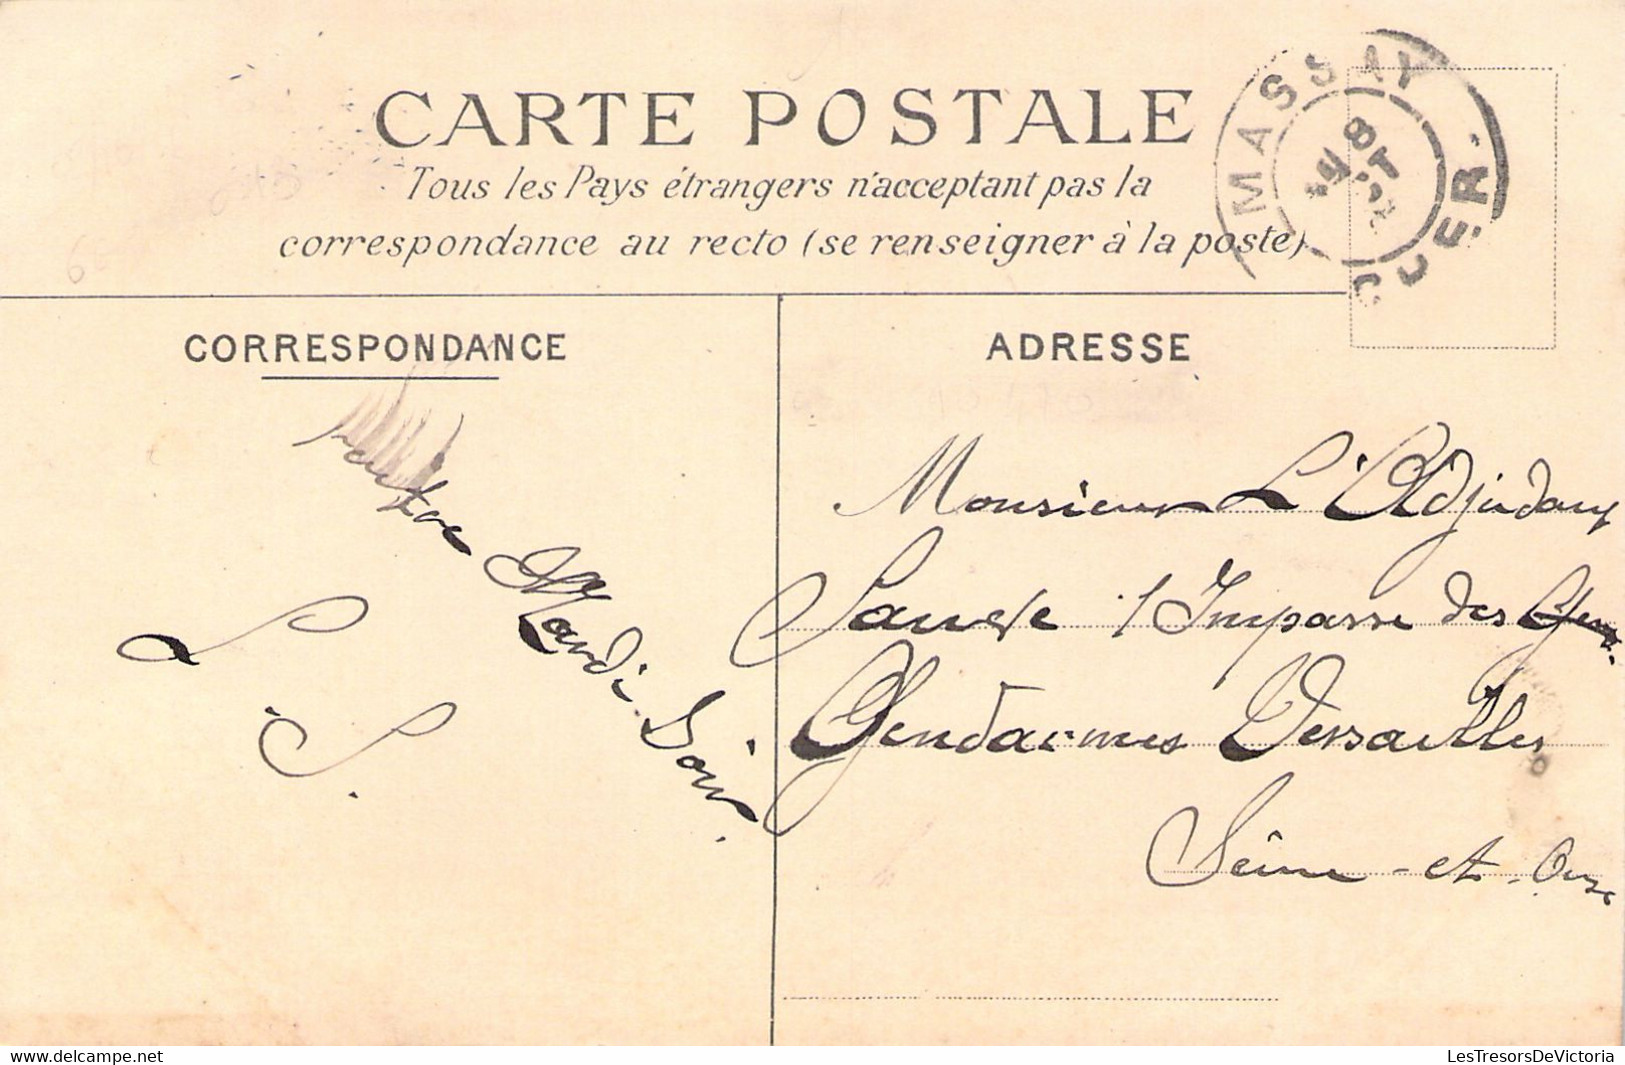 CARTE POSTALE
Tous les Pays étrangers n'acceptant pas la
correspondance au recto (se renseigner à la poste)
MASSAY
CHER
8
CORRESPONDANCE
Mardi Soir.
L. S.
ADRESSE
Monsieur L'Adjudant
1 Impasse des
Gendarmes Versailles
Seine-et-Oise
LesTresorsDeVictoria
delcampe.net